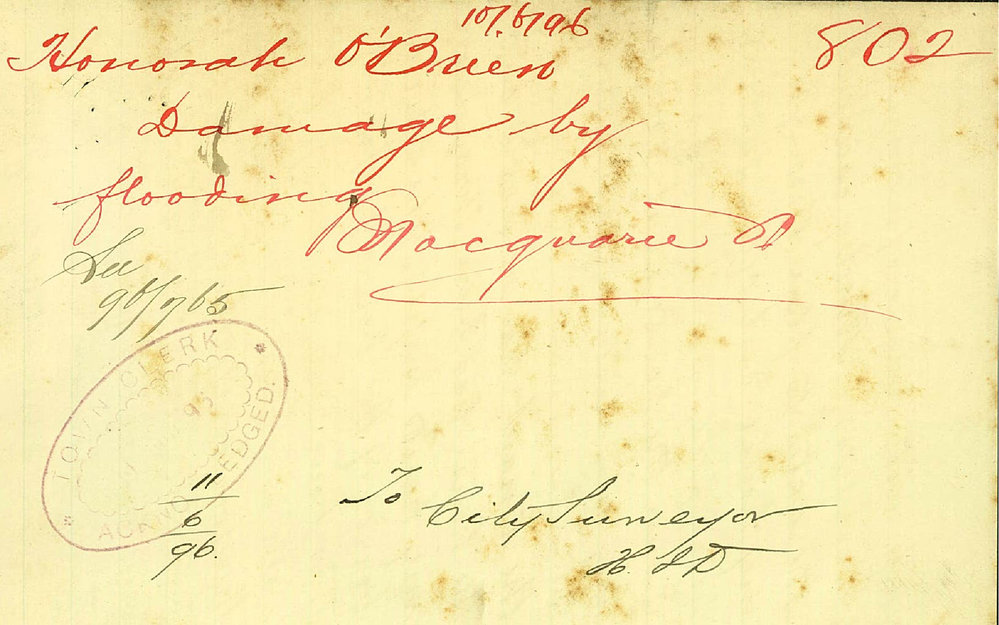 10/6/96
Honorah O'Brien 802
Damage by
flooding
Macquarie St
See
96/765
TOWN CLERK
ACKNOWLEDGED.
11
6
96.
To City Surveyor